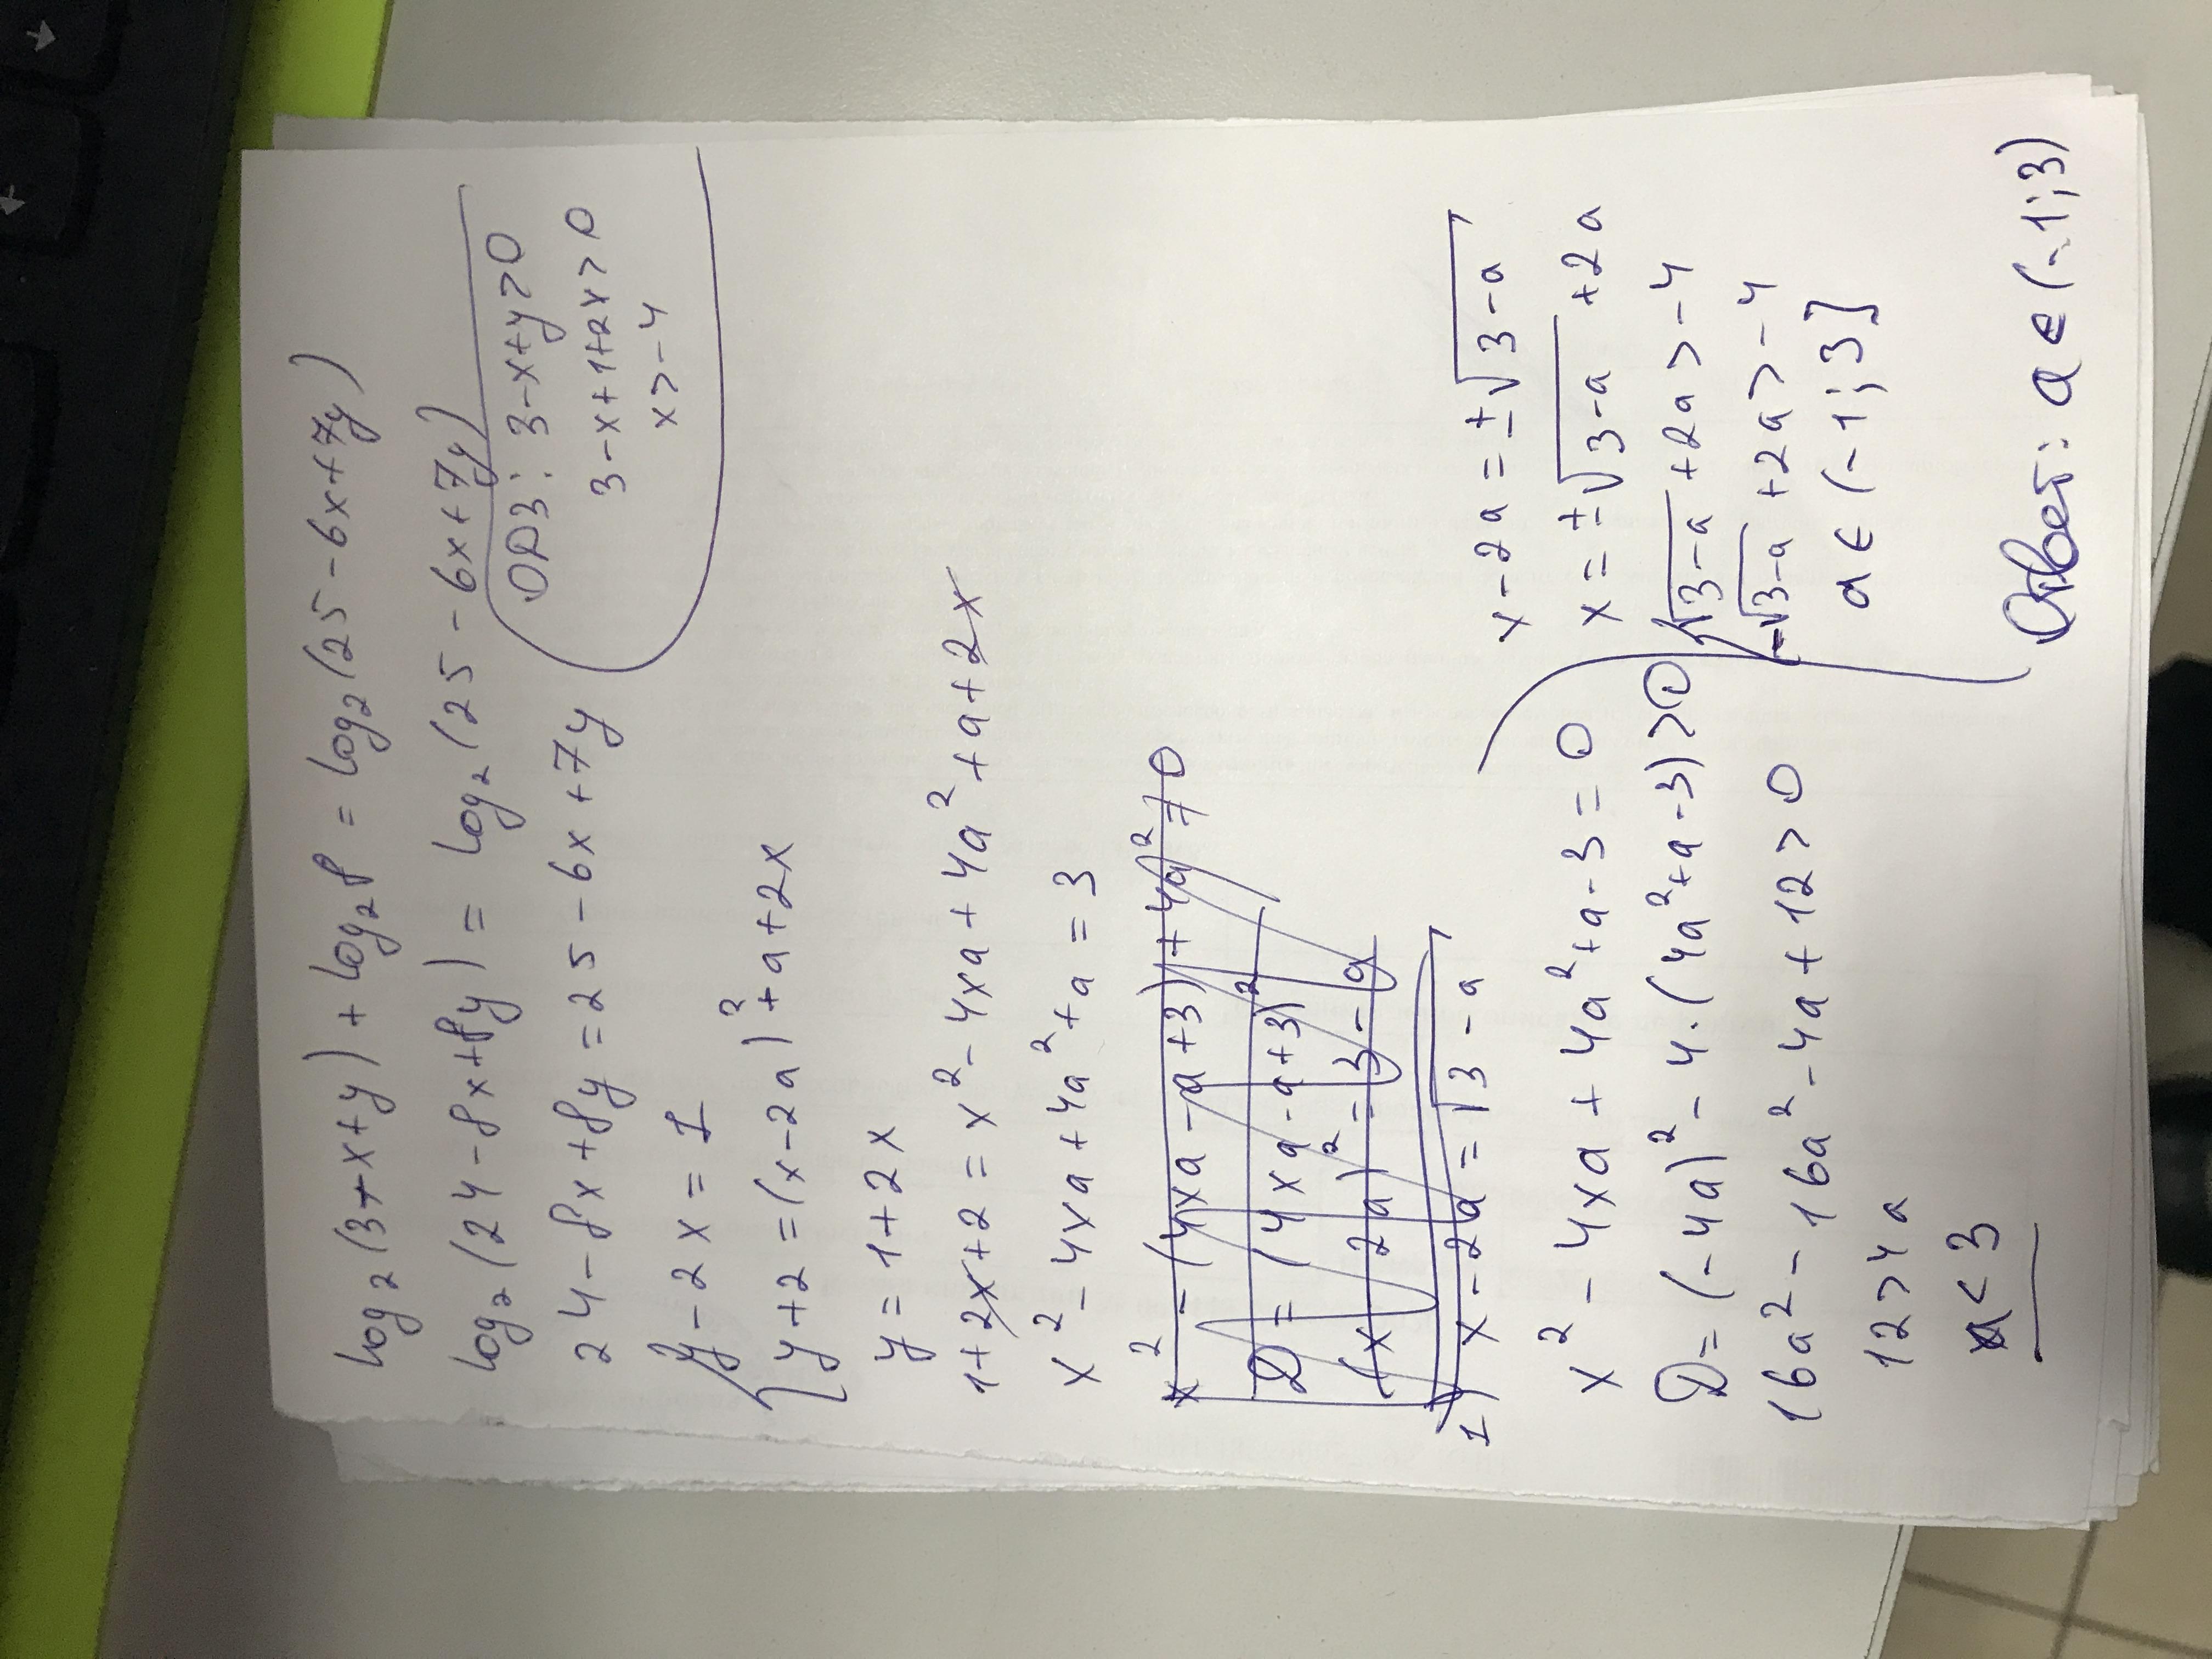 log₂(3-x+y) + log₂8 = log₂(25-6x+7y)
log₂(24-8x+8y) = log₂(25-6x+7y)
24-8x+8y = 25-6x+7y
ОДЗ: 3-x+y>0
3-x+1+2x>0
x>-4
y-2x=1
y+2=(x-2a)²+a+2x
y=1+2x
1+2x+2=x²-4xa+4a²+a+2x
x²-4xa+4a²+a=3
x²-(4xa-a+3)+4a²=0
D=(4xa-a+3)²
(x-2a)²=3-a
1) x-2a=√3-a
x²-4xa+4a²+a-3=0
D=(-4a)²-4·(4a²+a-3)>0
16a²-16a²-4a+12>0
12>4a
a<3
x-2a=±√3-a
x=±√3-a+2a
√3-a+2a>-4
-√3-a+2a>-4
a∈(-1;3]
Ответ: a∈(-1;3)